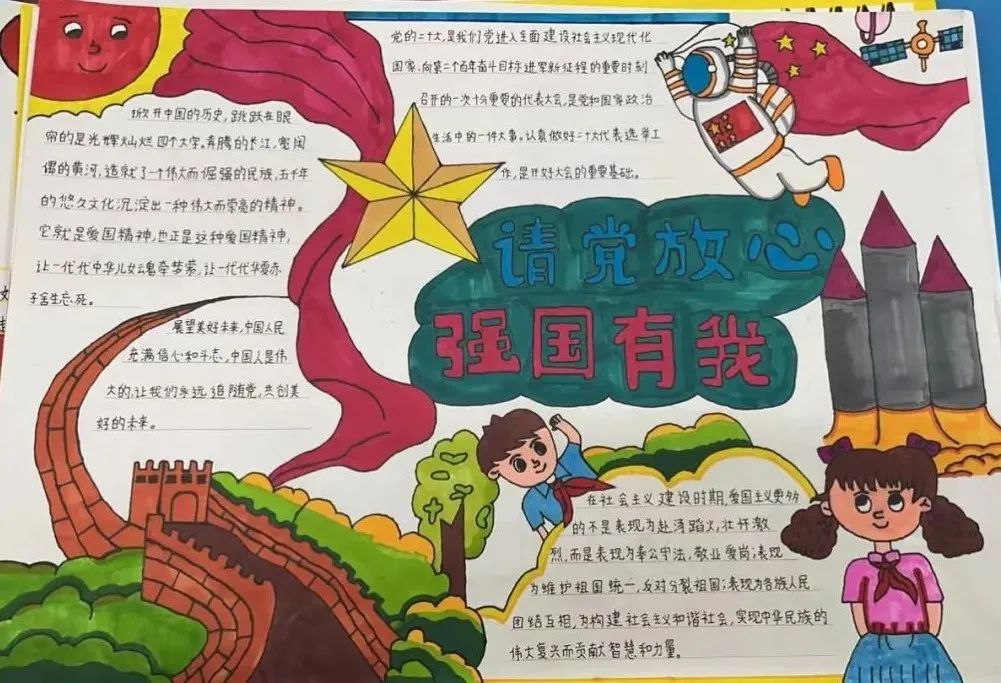 党的二十大,是我们党进入全面建设社会主义现代化
国家、向第二个百年奋斗目标进军新征程的重要时刻
召开的一次十分重要的代表大会,是党和国家政治
生活中的一件大事。认真做好二十大代表选举工
作,是开好大会的重要基础。
掀开中国的历史,跳跃在眼
帘的是光辉灿烂四个大字。奔腾的长江,宽阔
的黄河,造就了一个伟大而倔强的民族,五千年
的悠久文化沉淀出一种伟大而崇高的精神。
它就是爱国精神,也正是这种爱国精神,
让一代代中华儿女魂牵梦萦,让一代代华裔赤
子舍生忘死。
请党放心
强国有我
展望美好未来,中国人民
充满信心和斗志,中国人是伟
大的,让我们永远追随党,共创美
好的未来。
在社会主义建设时期,爱国主义更多
的不是表现为赴汤蹈火,壮怀激
烈,而是表现为奉公守法,敬业爱岗;表现
为维护祖国统一,反对分裂祖国;表现为各族人民
团结互相,为构建社会主义和谐社会,实现中华民族的
伟大复兴而贡献智慧和力量。